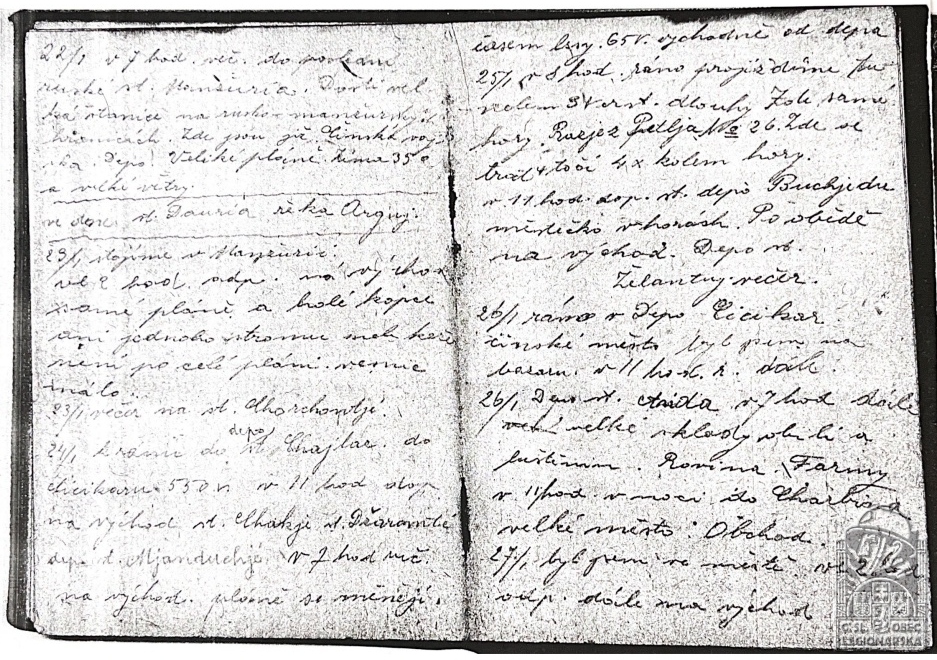 22/1 v 7 hod. več. do poslední
ruské st. Manžuria. Dosti vel
ká stanice na rusko-manžurských
hranicích. Zde jsou již čínská voj
ska Depo. Veliké pláně. Zima 35°
a velké větry.
ve dne st. Dauria řeka Arguj.
23/1 stojíme v Manžurii.
ve 2 hod. odp. na východ
samé pláně a holé kopce
ani jednoho stromu
po celé pláni. vesnic
málo.
23/1 večer na st. Charchontje.
24/1 k ránu do depo st. Chajlar. do
Cicikaru 550 v. v 11 hod dop
na východ st. Chakje st. Džaromte
depo st. Mjanduchje. v 7 hod več.
na východ. pláně se mění
časem lesy. 65 v. východně od depa
25/1 v 8 hod. ráno projíždíme tu
nelem 3 verst. dlouhý Zde samé
hory. Razjez Petlja No 26. Zde se
trať točí 4x kolem hory.
v 11 hod. dop. st. depo Buchjedu
městečko v horách. Po obědě
na východ. Depo st.
Želantuj večer.
26/1 ráno v Depo Cicikar
čínské město byl jsem na
bazaru. v 11 hod. r. dále.
26/1 Depo st. Anda v 7 hod dále
velké sklady obilí a
Rovina. Farmy
v 11 hod. v noci do Charbina
velké město. Obchod.
27/1 byl jsem ve městě. ve 2 hod
odp. dále na východ
Č.SL. OBEC
LEGIONÁŘSKÁ